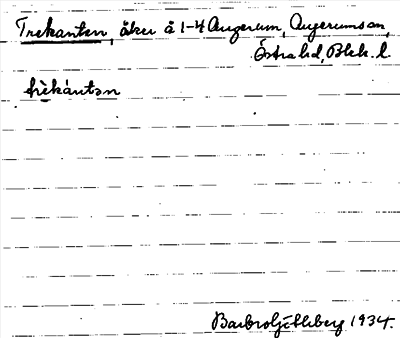 Trekanten, åker å 1-4 Augerum, Augerums sn,
Östra hd, Blek. l.
trèkántən
Barbro 1934.